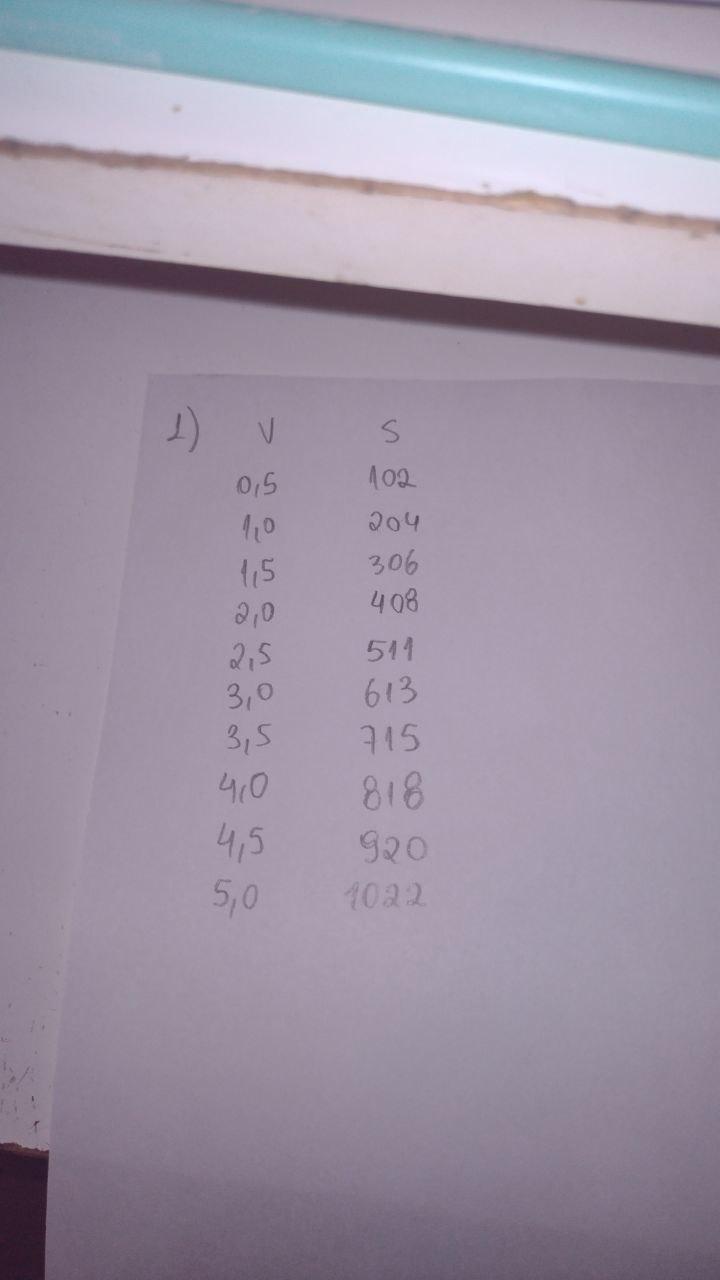 1) V S
0,5 102
1,0 204
1,5 306
2,0 408
2,5 511
3,0 613
3,5 715
4,0 818
4,5 920
5,0 1022